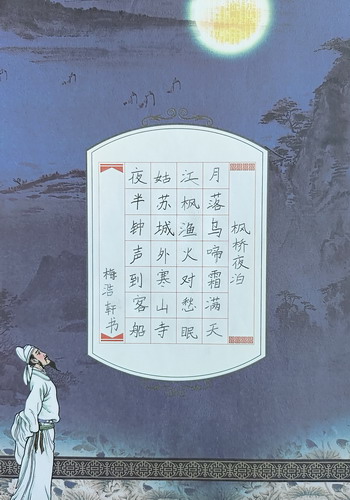 枫桥夜泊
月落乌啼霜满天
江枫渔火对愁眠
姑苏城外寒山寺
夜半钟声到客船
梅浩轩书